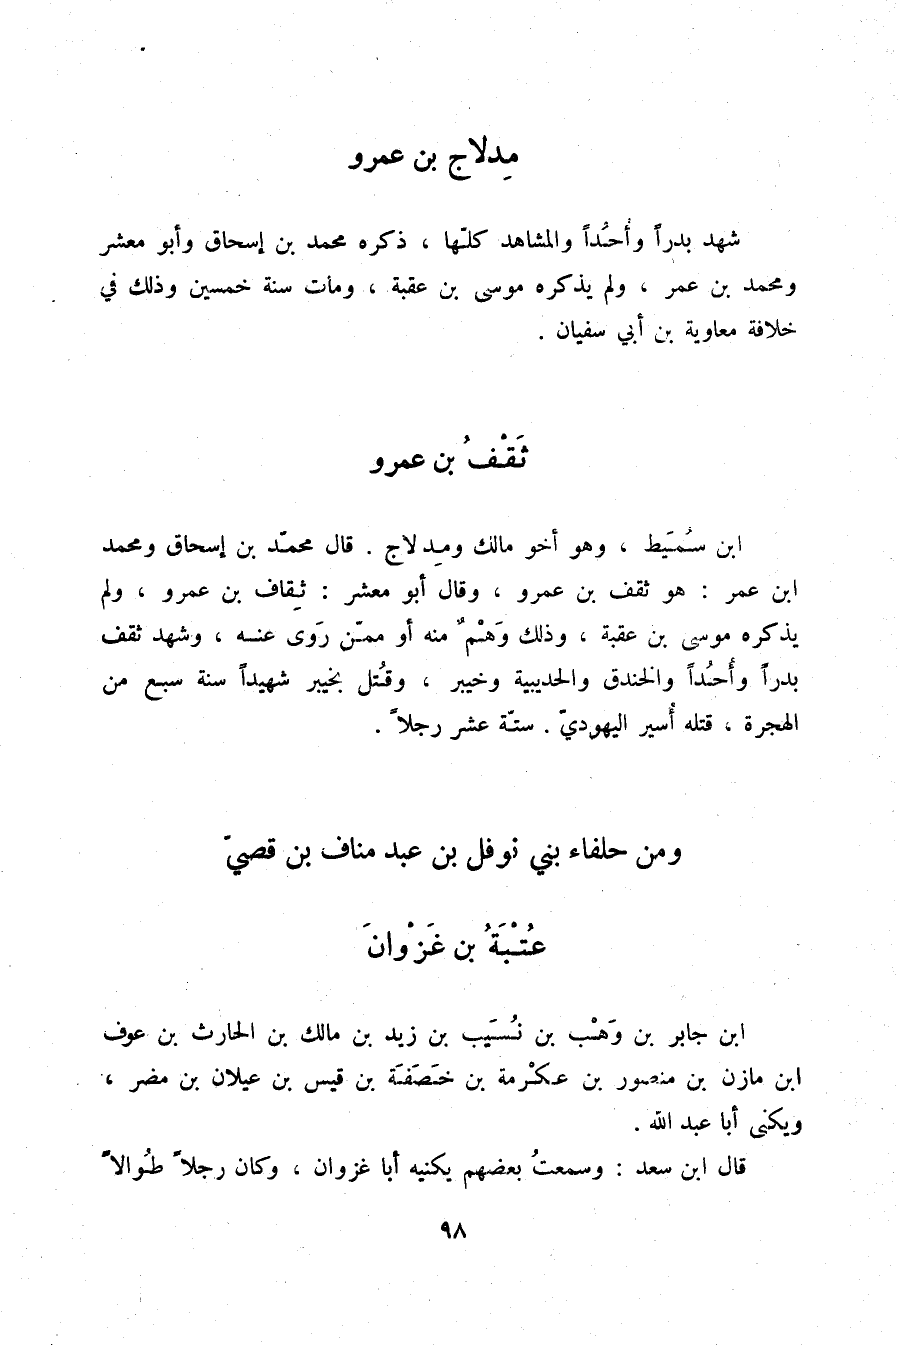 مِدلاج بن عمرو
شهد بدراً وأُحُداً والمشاهد كلّها ، ذكره محمد بن إسحاق وأبو معشر
ومحمد بن عمر ، ولم يذكره موسى بن عقبة ، ومات سنة خمسين وذلك في
خلافة معاوية بن أبي سفيان .
ثَقْفُ بن عمرو
ابن سُمَيط ، وهو أخو مالك ومِدلاج . قال محمّد بن إسحاق ومحمد
ابن عمر : هو ثقف بن عمرو ، وقال أبو معشر : ثِقاف بن عمرو ، ولم
يذكره موسى بن عقبة ، وذلك وَهْمٌ منه أو ممّن رَوى عنه ، وشهد ثقف
بدراً وأُحُداً والخندق والحديبية وخيبر ، وقُتل بخيبر شهيداً سنة سبع من
الهجرة ، قتله أُسير اليهوديّ . ستّة عشر رجلاً .
ومن حلفاء بني نوفل بن عبد مناف بن قصيّ
عُتْبَةُ بن غَزْوانَ
ابن جابر بن وَهْب بن نُسَيب بن زيد بن مالك بن الحارث بن عوف
ابن مازن بن منصور بن عكْرمة بن خَصَفَة بن قيس بن عيلان بن مضر ،
ويكنى أبا عبد الله .
قال ابن سعد : وسمعتُ بعضهم يكنيه أبا غزوان ، وكان رجلاً طُوالاً
٩٨